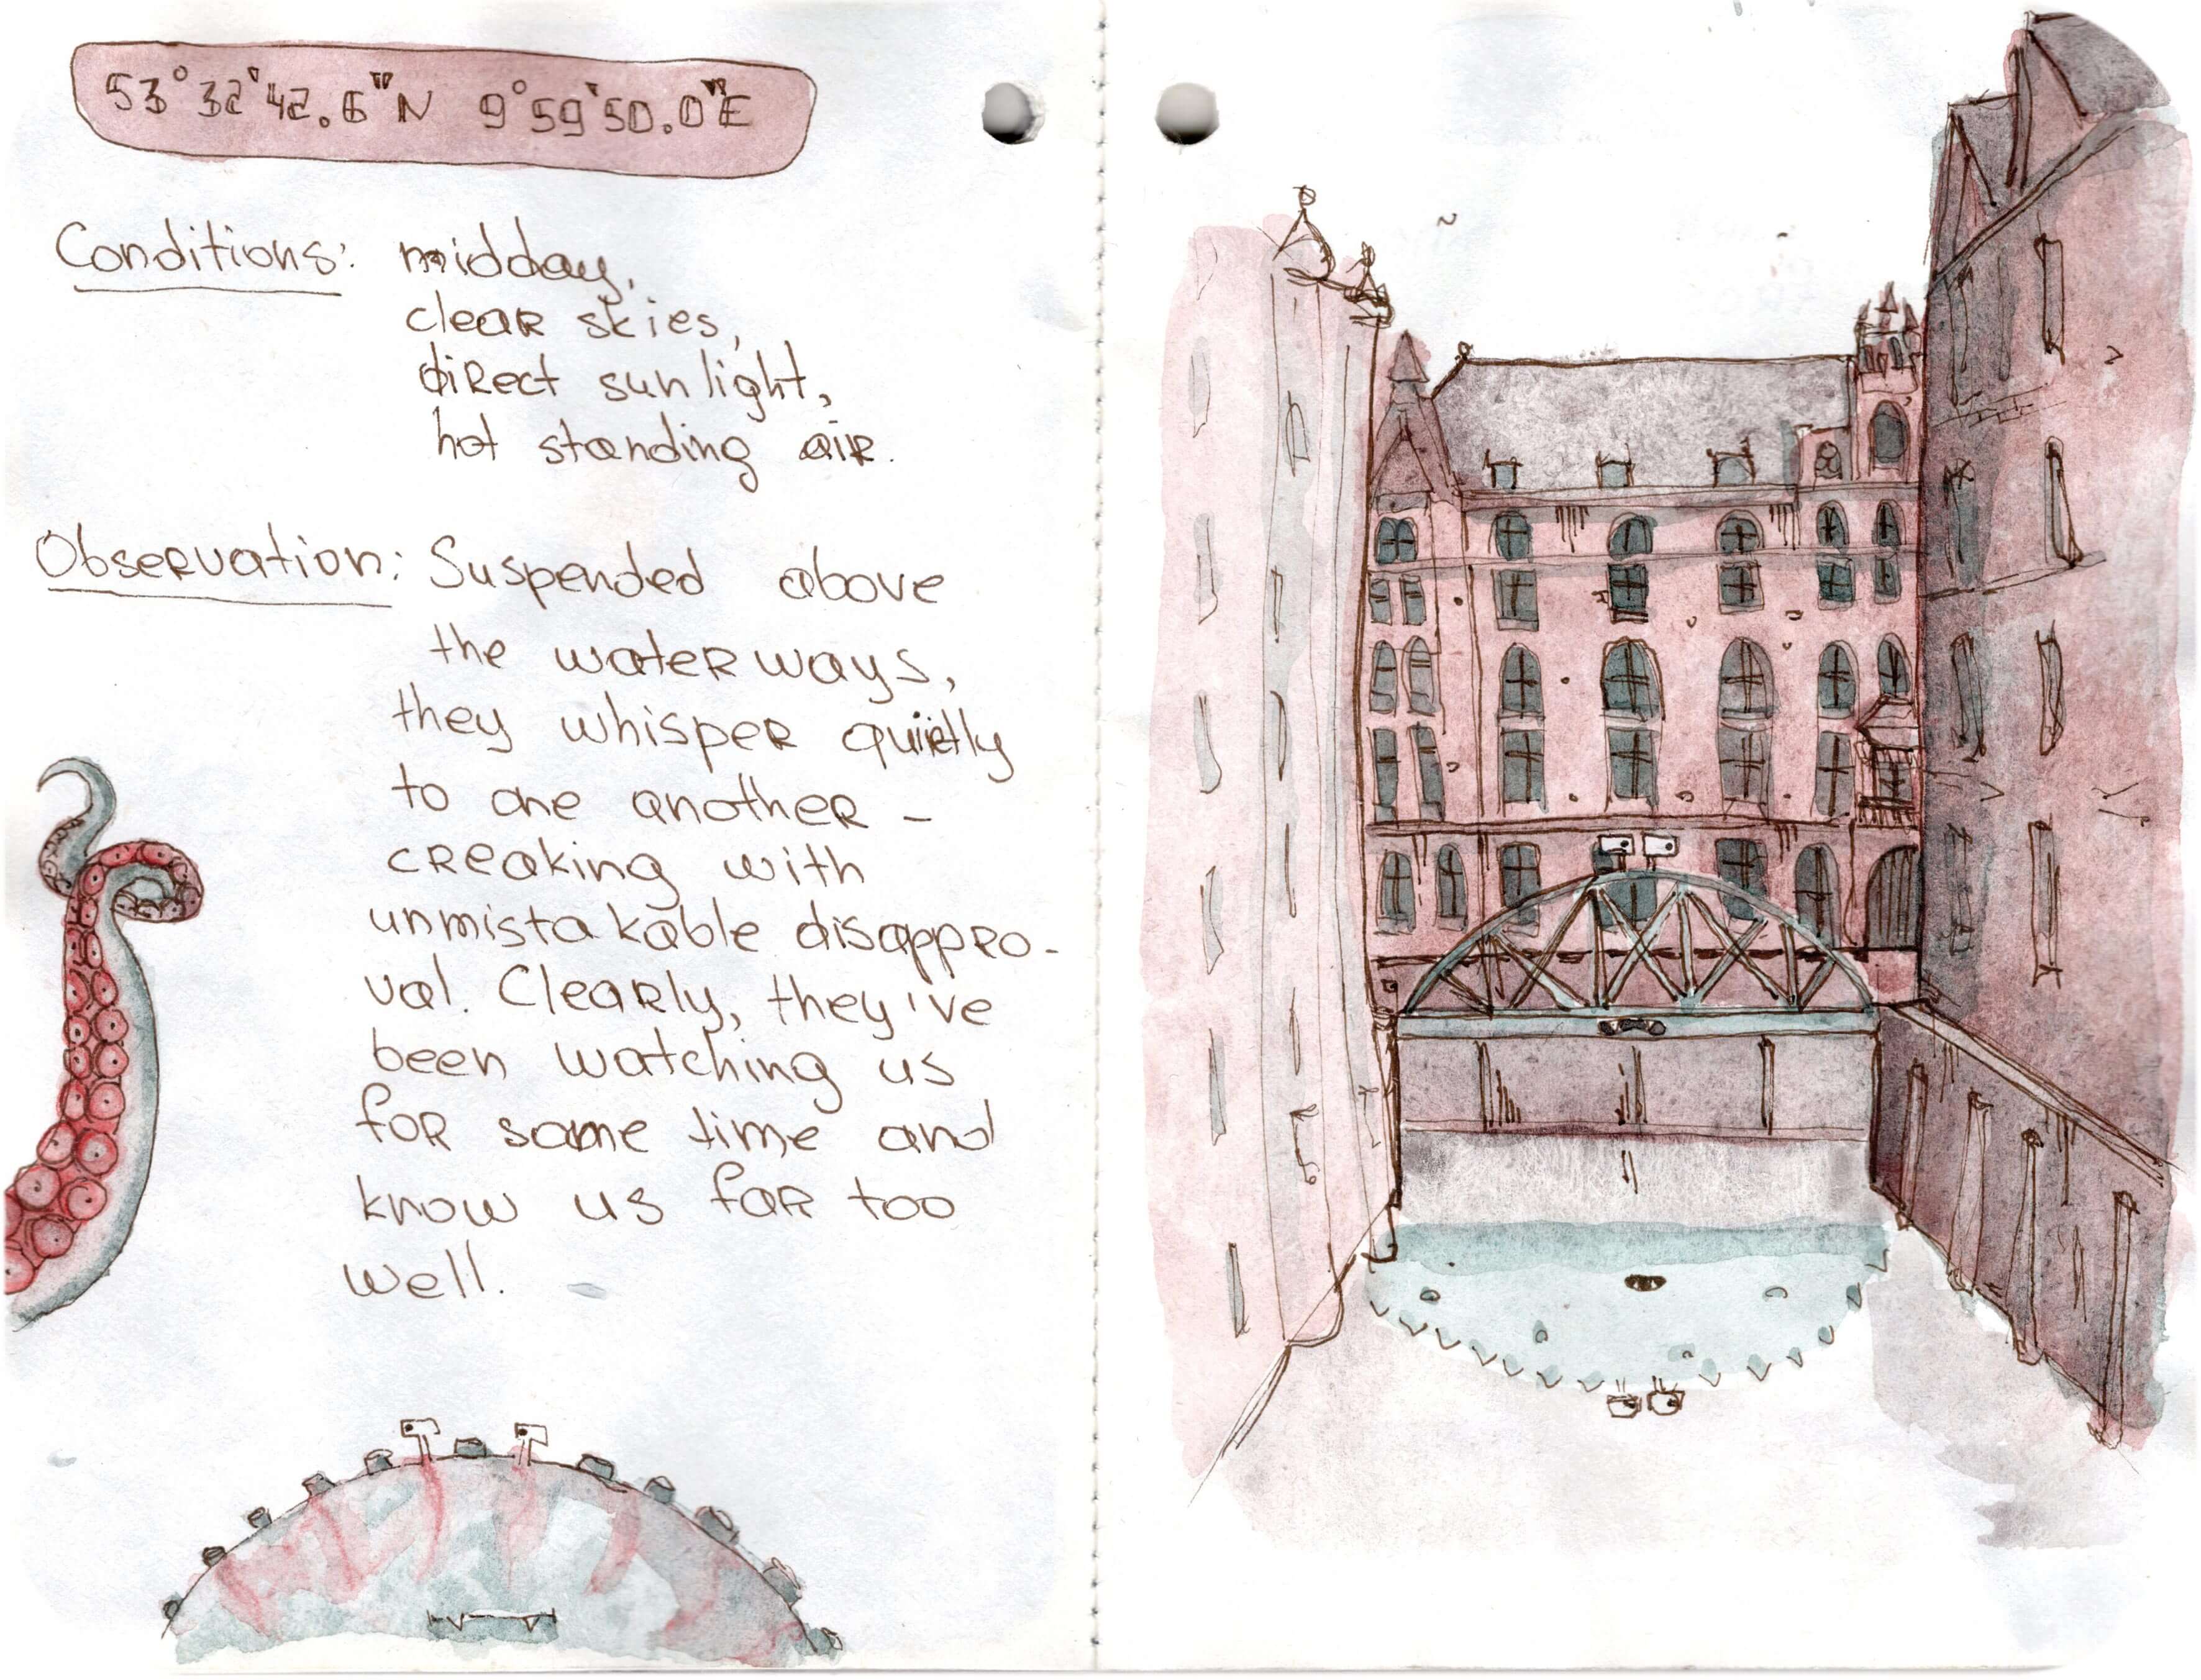 53°32'42.6"N 9°59'50.0"E
Conditions: midday,
clear skies,
direct sunlight,
hot standing air.
Observation: Suspended above
the waterways,
they whisper quietly
to one another –
creaking with
unmistakable disappro-
val. Clearly, they've
been watching us
for some time and
know us far too
well.